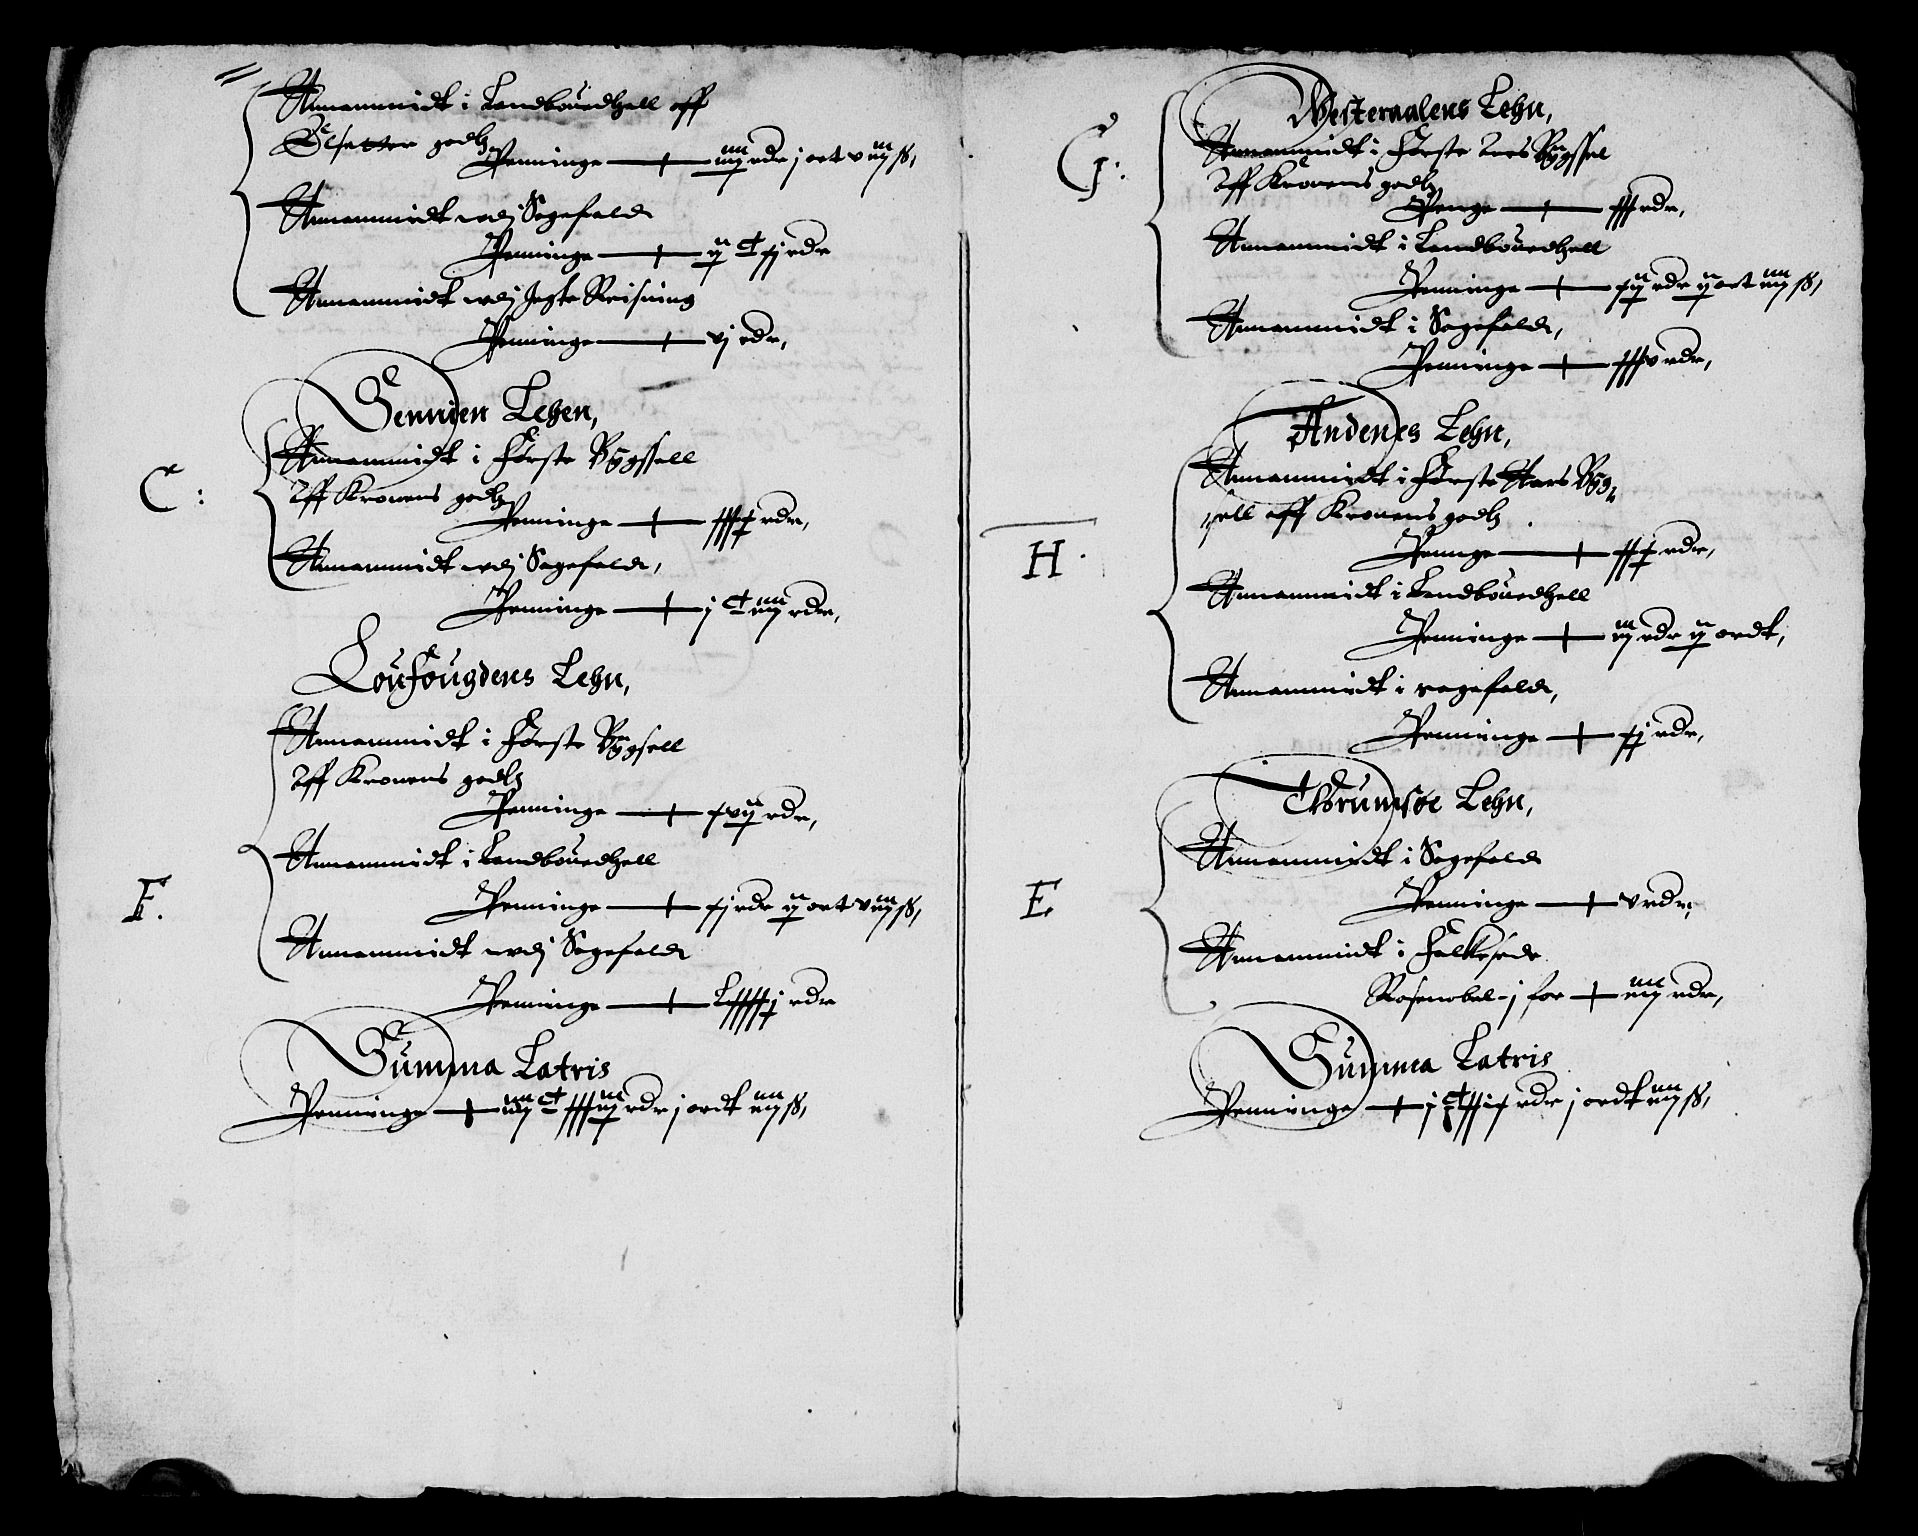 Annammidt i Landbouedhell aff
godtz
Penninge — iiij rdr j ort viij ß,
Annammidt udj Sagefald
Penninge — ij C xj rdr
Annammidt udj Jegte Reisning
Penninge — vj rdr,
Sennien Lehen,
C:
Annammidt i Første Bygssell
Aff Kronens godtz
Penninge — rdr,
Annammidt udj Sagefald,
Penninge — j C iiij rdr,
Loufougdens Lehn,
Annammidt i Første Bygsell
Aff Kronens godtz
Penninge — xvij rdr,
Annammidt i Landbouedhell
F.
Penninge — xj rdr ij ort viij ß,
Annammidt udj Sagefald
Penninge — Lxxxxj rdr
Summa Latris
Penninge — rdr j ordt iiij ß,
Westeraalens Lehn,
G:
Annammidt i Første Aars Bygssel
Aff Kronens godtz
Penge — xxx rdr,
Annammidt i Landbouedhell
Penninge — xij rdr ij ort iiij ß,
Annammidt i Sagefald,
Penninge — xxxv rdr,
Andenes Lehn,
Annammidt i Første Aars Byg
sell aff Kronens godtz
H.
Pennge — rdr,
Annammidt i Landbouedhell
Penninge — iij rdr ij ordt,
Annammidt i sagefald,
Penninge — xj rdr,
Thrumsøe Lehn,
Annammidt i Sagefald
E
Penninge — v rdr,
Annammidt i Falkesede
Rosenobel j for — iiij rdr,
Summa Latris
Penninge — rdr j ordt iiij ß,